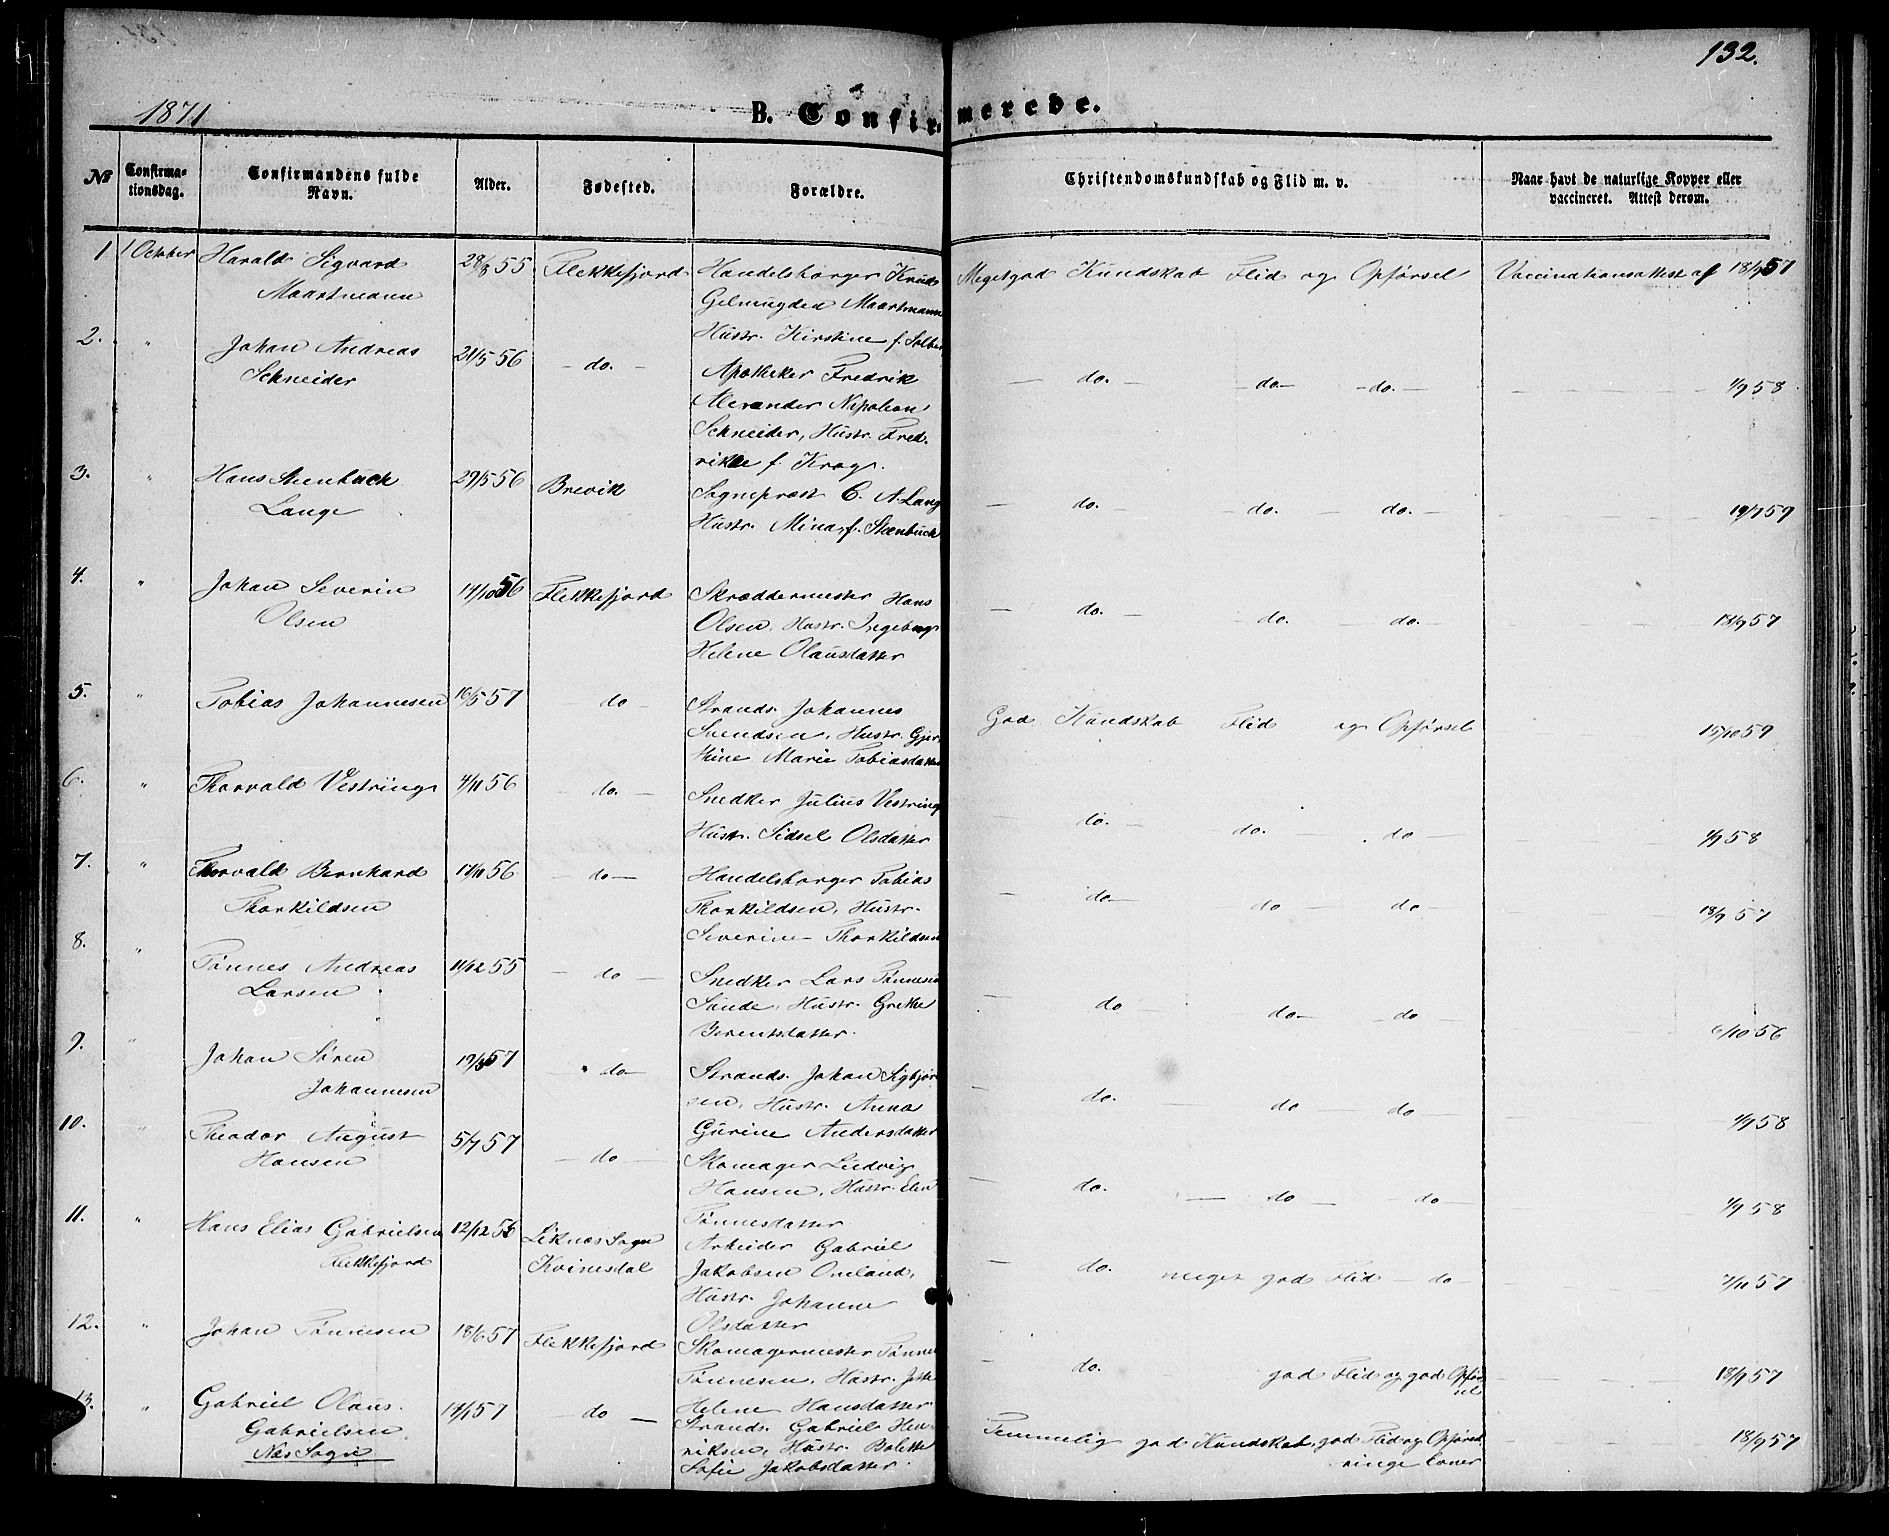 132.
1871
B. Confirmerede.
№
Confirma-
tionsdag.
Confirmandens fulde
Navn.
Alder.
Fødested.
Forældre.
Christendomskundskab og Flid m. v.
Naar havt de naturlige Kopper eller
vaccineret. Attest derom.
1 1 October Harald Sigvard 28/8 55 Flekkefjord Handelsborger Knud Megetgod Kundskab Flid og Opførsel Vaccinationsattest af 18/9 57
Maartmann Maartmann
Hustr. Kirstine f.
2. " Johan Andreas 21/5 56 - do. - Apotheker Fredrik - do. - - do. - - do. - 1/9 58
Schneider Alexander Napoleon
Schneider, Hustr. Fred-
rikke f. Krog.
3. " Hans Steenbuch 29/5 56 Brevik Sogneprest C. A. Lang - do. - - do. - - do. - 19/7 59
Lange Hustr. Mina, f. Steenbuch
4. " Johan Severin 14/10 56 Flekkefjord Skreddermester Hans - do. - - do. - - do. - 18/9 57
Olsen Olsen, Hustr. Ingeborg
Helene Olausdatter
5. " Tobias Johannesen 16/5 57 - do - Strands. Johannes God Kundskab Flid og Opførsel 15/10 59
Svendsen, Hustr. Gjer-
thine Marie Tobiasdatter
6. " Thorvald Vestring 4/11 56 - do. - Snedker Julius Vestring - do. - - do. - - do - 1/9 58
Hustr. Sidsel Olsdatter
7. " Thorvald Bernhard 17/11 56 - do - Handelsborger Tobias - do - - do - - do - 18/9 57
Thorkildsen Thorkildsen, Hustr.
Severine Thorkildsen
8. " Tønnes Andreas 11/12 55 - do - Snedker Lars Tønnesen - do - do - - do - 6/10 56
Larsen Sunde, Hustr. Grethe
Berentsdatter.
9. " Johan Søren 19/3 57 - do - Strands. Johan Sigbjør- do. - do - do - 1/9 58
Johannesen sen, Hustr. Anna
Gurine Andersdatter
10. " Theodor August 5/7 57 - do - Skomager Ludvig do. - do - do - 1/9 58
Hansen Hansen, Hustr. Elen
Tønnesdatter
11. " Hans Elias Gabrielsen 12/12 56 Liknes Sogn Arbeider Gabriel do. meget god Flid - do - 7/11 57
Flekkefjord Kvinesdal Jakobsen Omland,
Hustr. Johanne
Olsdatter
12. " Johan Tønnesen 18/6 57 Flekkefjord Skomagermester Tønnes - do. god Flid og god Opfør- 18/9 57
Tønnesen, Hustr. sel
Helene Hansdatter
13. " Gabriel Olaus 14/1 57 - do - Strands. Gabriel Hen- Temmelig god Kundskab, god Flid og Opførsel 18/9 57
Gabrielsen riksen, Hustr. Bolette ringe Evner
Nes Sogn Sofie Jakobsdatter.